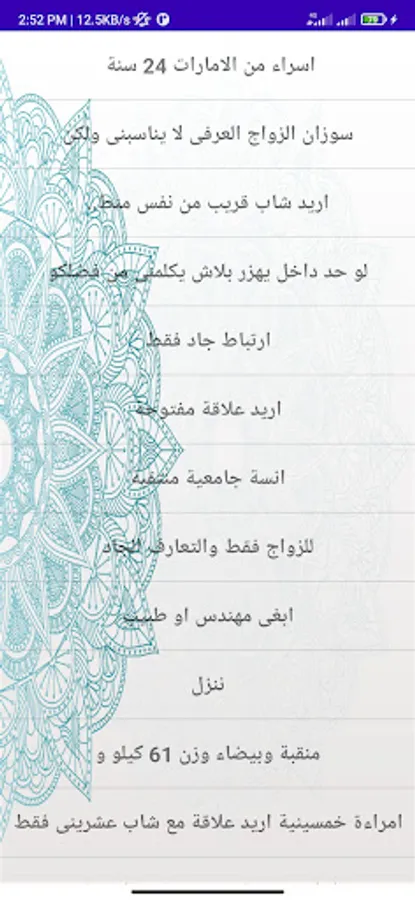 2:52 PM | 12.5KB/s
4G
79
اسراء من الامارات 24 سنة
سوزان الزواج العرفى لا يناسبنى ولكن
اريد شاب قريب من نفس
لو حد داخل يهزر بلاش يكلمنى من فضلكو
ارتباط جاد فقط
اريد علاقة مفتوحة
انسة جامعية منتقبة
للزواج فقط والتعارف الجاد
ابغى مهندس او طبيب
ننزل
منقبة وبيضاء وزن 61 كيلو و
امراءة خمسينية اريد علاقة مع شاب عشرينى فقط